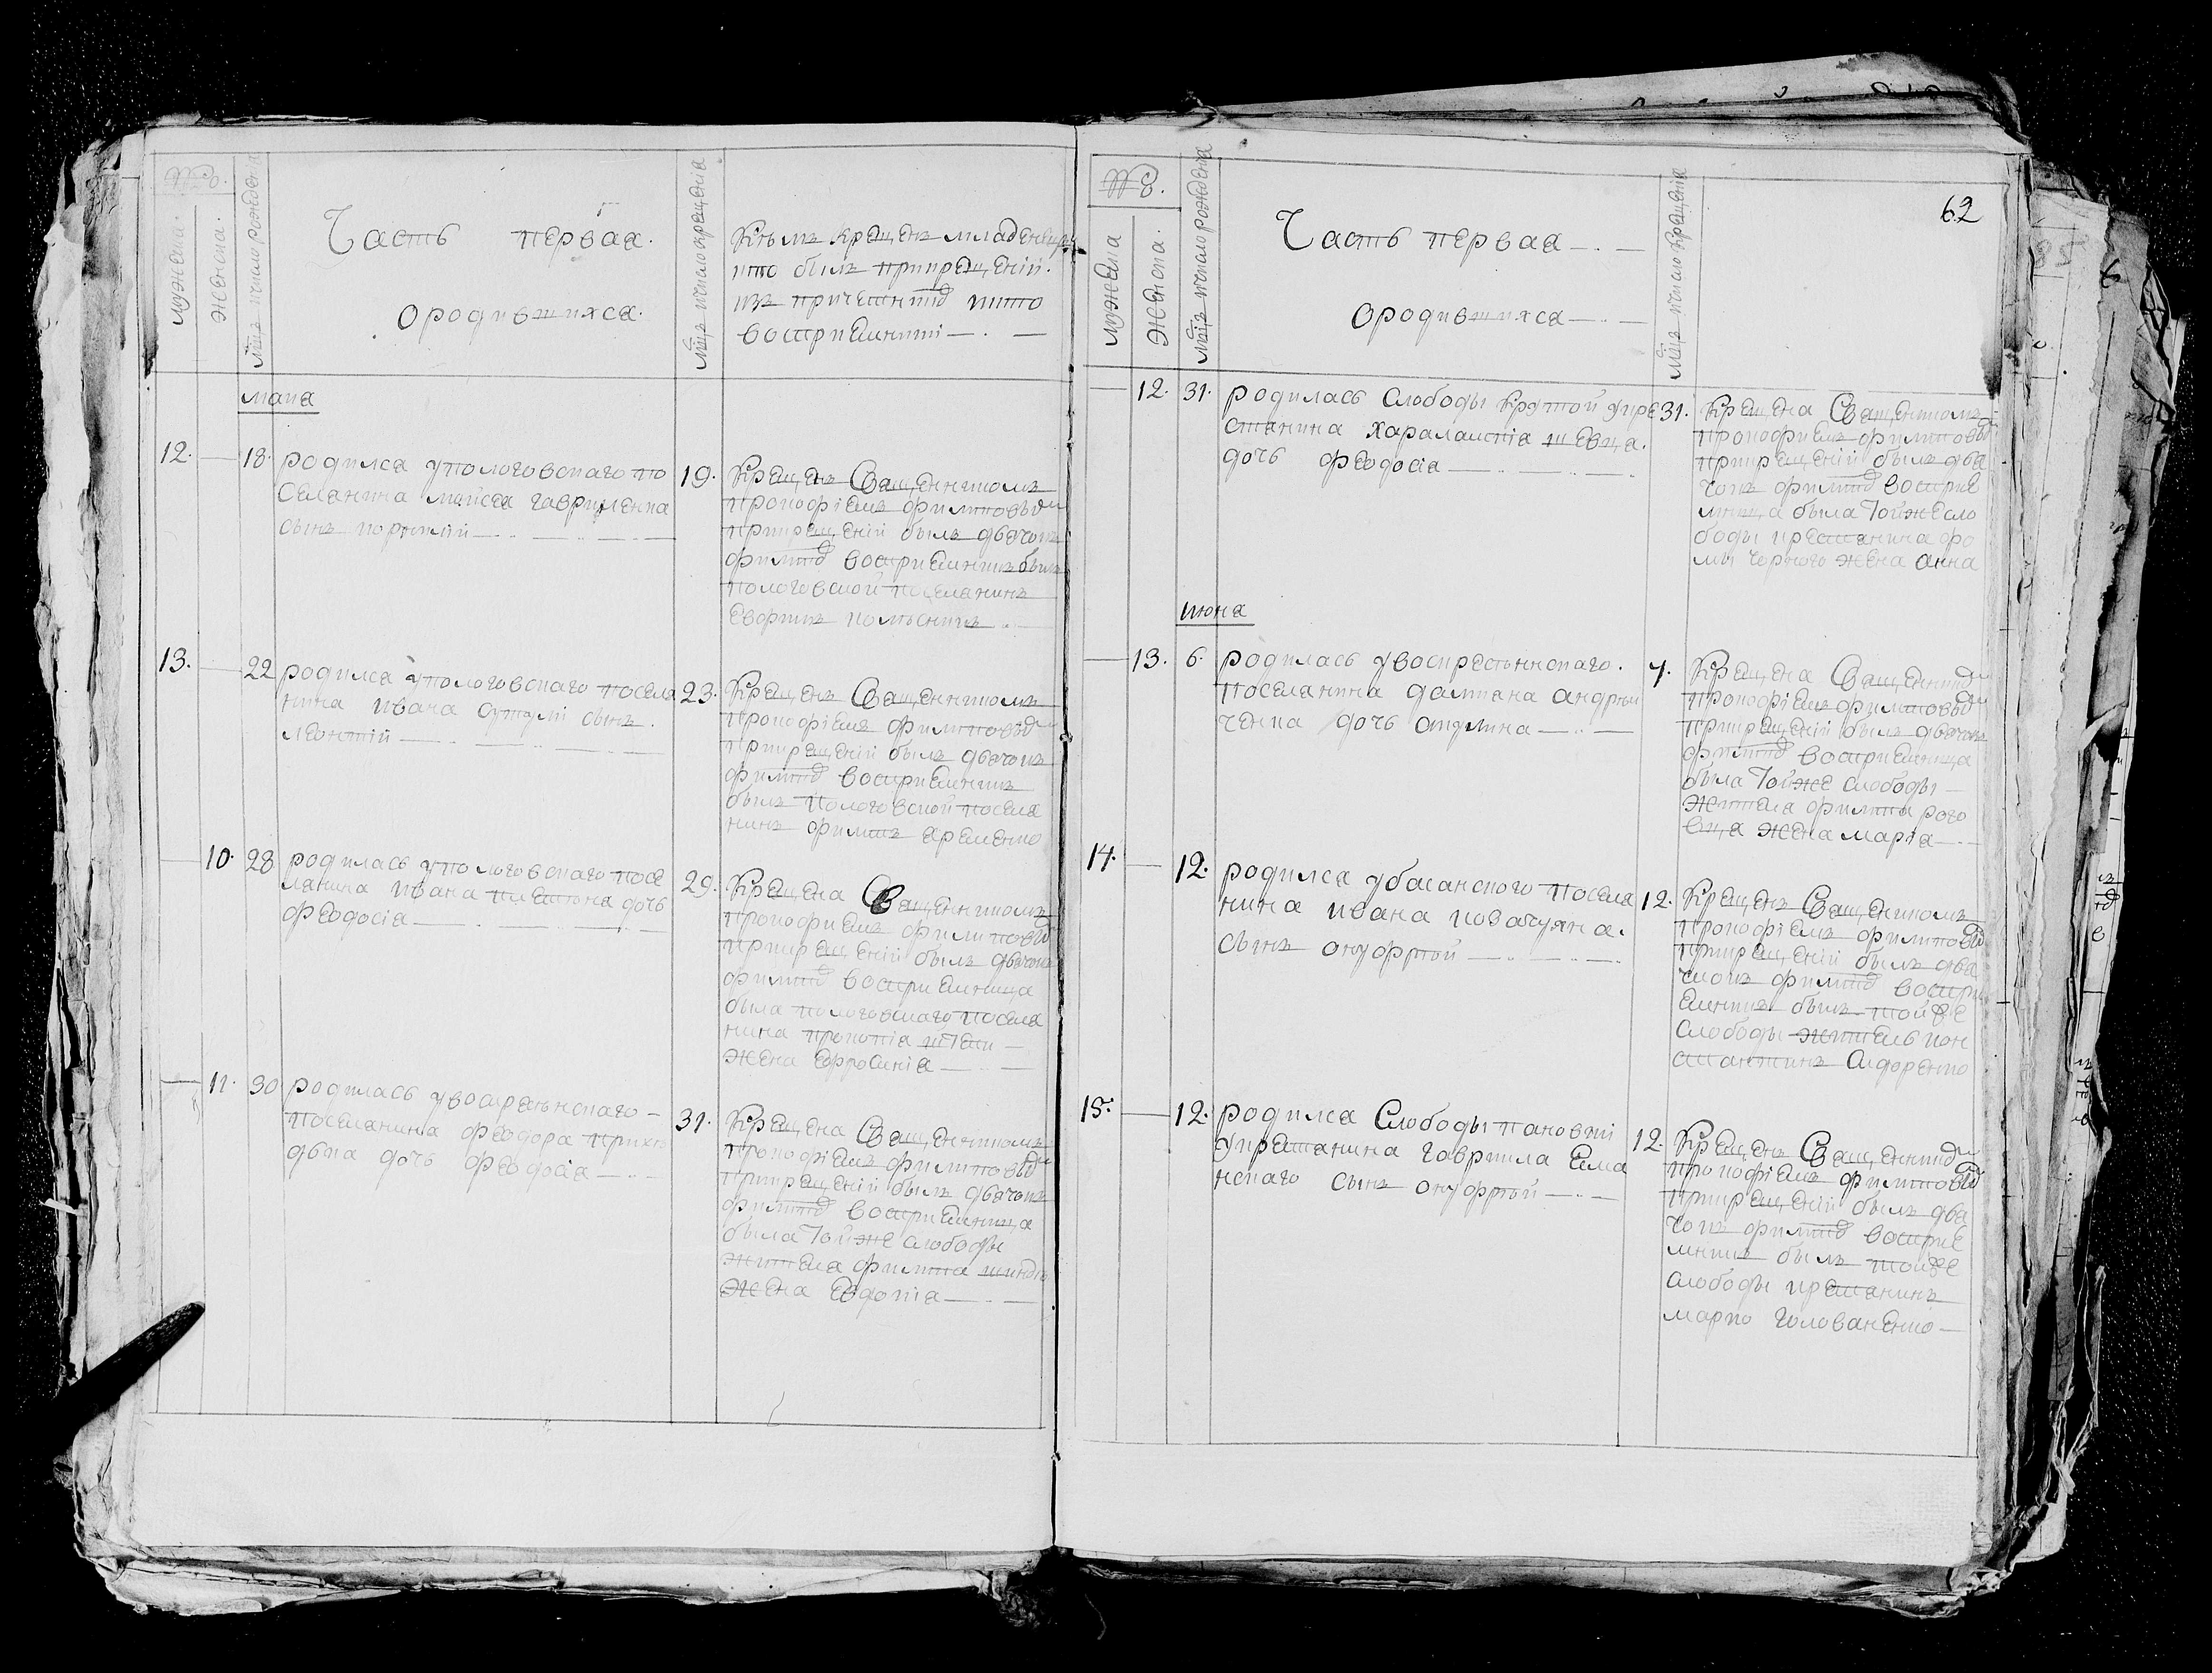 №.
мужеска.
женска.
мц҃ъ и число рожденїя
Часть первая.
ородившихся.
мц҃ъ и число крещенїя
Кѣмъ крещенъ младенецъ
кто былъ прикрещенїи.
изъ причетник кто
восприемники
маия
12. 18. родился упологовскаго по
селянина мойсея гавриленка
сынъ
19. Крещенъ Священникомъ
прокофїемъ филиповым
прикрещенїи былъ дьячокъ
филип восприемникъ былъ
пологовской поселянинъ
13. 22 родился упологовскаго поселя
нина ивана сынъ.
леонтий
23. Крещенъ Священникомъ
прокофїемъ филиповым
прикрещенїи былъ дьячокъ
филип восприемникъ
былъ пологовской поселя
нинъ филипъ яременко
10. 28 родилась упологовскаго посе
лянина ивана дочь
феодосїа
29. Крещена Священникомъ
прокофиемъ филиповым
прикрещенїи былъ дьячокъ
филип восприемница
была пологовскаго поселя
нина прокопїа
жена ефросинїа
11. 30 родилась увоскресѣнскаго
поселянина феодора
дька дочь феодосїа
31. Крещена Священникомъ
прокофїемъ филиповым
прикрещенїи былъ дьячокъ
филип восприемница
была Тойже слободы
жителя филипа
жена Евдокїа
62
№.
мужеска
женска.
мц҃ъ и число рожденїя
Часть первая
ородившихся
мц҃ъ и число крещенїя
12. 31. родилась Слободы Крутой укре
стянина харалампїа шевца.
дочь феодосїа
31. Крещена Священникомъ
прокофиемъ филиповым
прикрещенїи былъ дья
чокъ филип восприе
мница была Тойжесло
боды крестянина фо
мы чорного жена анна
июня
13. 6. родилась увоскресѣнскаго.
поселянина дамиана андрѣй
ченка дочь акулина
7. Крещена Священник
прокофїемъ филиповым
прикрещенїи былъ дьячокъ
филип восприемница
была Тойже слободы
жителя филипа рого
вца жена марїа
14. 12. родился убасанского поселя
нина ивана
сынъ онуфрѣй
12. Крещенъ Священникомъ
прокофїемъ филиповым
прикрещенїи былъ дья
чокъ филип воспри
емникъ былъ тойже
слободы житель кон
стантинъ Сидоренко
15. 12. родился Слободы
укрестянина гавриила Ема
нского сынъ онуфрѣй
12. Крещенъ Священник
прокофїемъ филиповым
прикрещенїи былъ дья
чокъ филип восприе
мникъ былъ тойже
слободы крестянинъ
марко голованенко